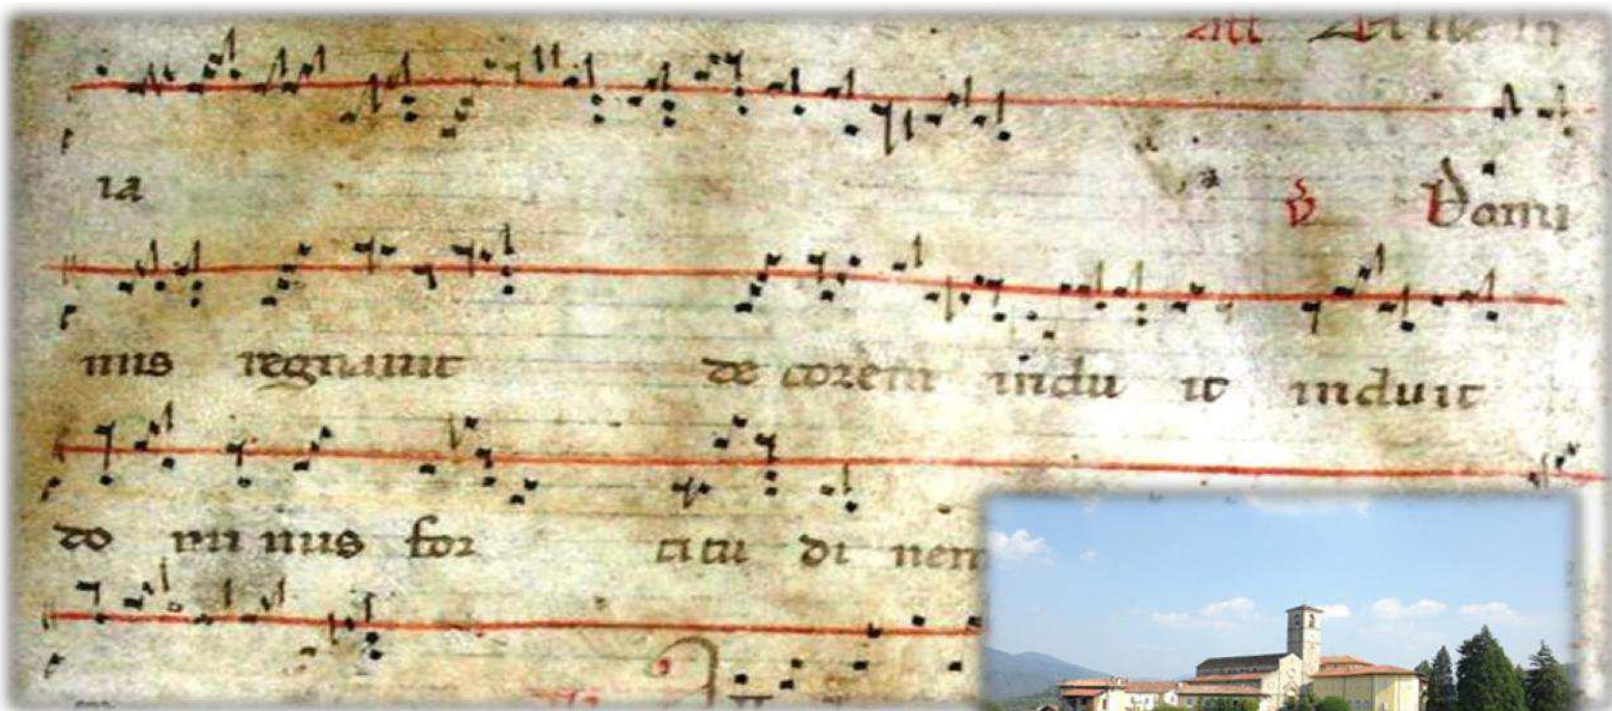 All Alle lu
ia ℣ Domi
nus regnavit de corem indu it induit
do mi nus for titu di nem